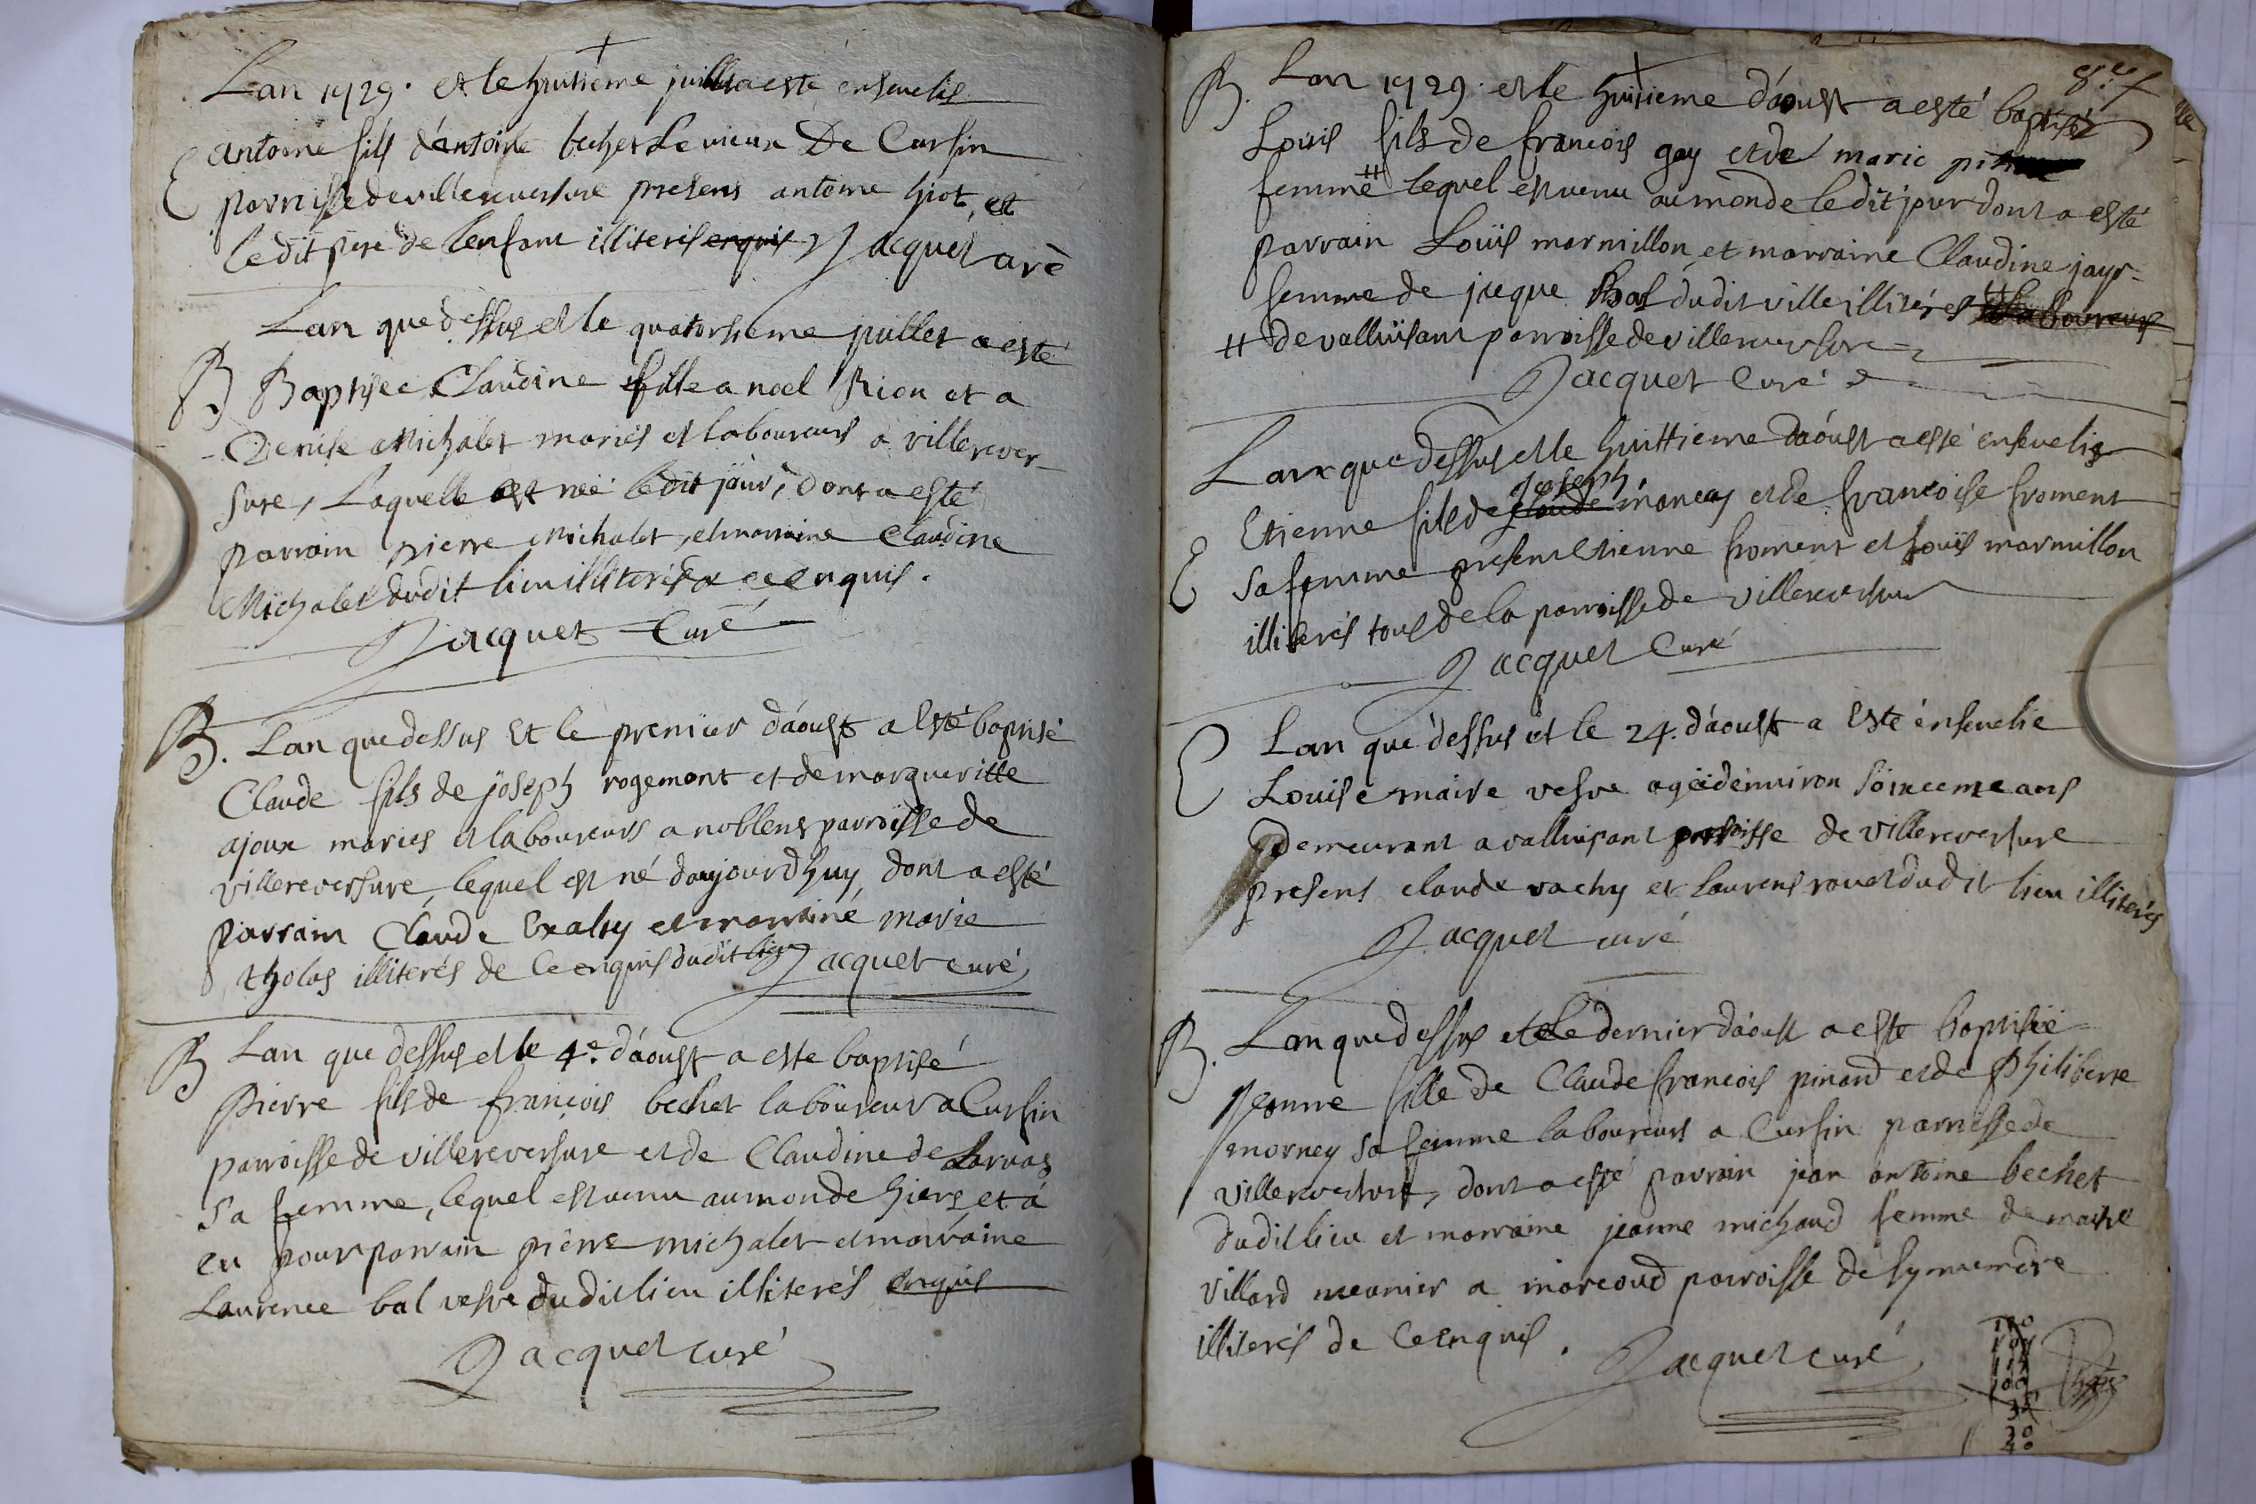 Lan 1729. et le huitieme juillet a esté ensevelis
E antoine fils d'antoine bechet Le vieux De Cursin
parroisse de villereversure presens antoine hiot, et
le dit pere de lenfant illiterés enquis Jacquet curé
Lan que dessus et le quatorsieme juillet a esté
B Baptisée Claudine fille a noel Rion et a
Denise Michalet mariés et laboureurs a villerever-
sure, Laquelle est née le dit jour, dont a esté
parrain pierre Michalet, et marraine Claudine
Michalet dudit lieu illiterés de ce enquis.
Jacquet Curé
B. Lan que dessus Et le premier d'aoust a Esté baptisé
Claude fils de joseph rogemont et de margueritte
ajoux mariés et laboureurs a noblens parroisse de
villereversure, lequel est né daujourdhuy, dont a esté
parrain Claude Exalty et marrine marie
tholas illiterés de ce enquis dudit lieu Jacquet curé
B Lan que dessus et le 4e. d'aoust a este baptisé
Pierre fils de françois bechet laboureur a Cursin
parroisse de villereversure et de Claudine de Larnas
sa femme, lequel est venu au monde hiers, et à
eu pour parrain pierre michalet et marraine
Laurence bal vesve dudit lieu illiterés enquis
Jacquet curé
B. Lan 1729. et le huitieme d'aoust a esté baptisé
Louis fils de francois gay et de marie
femme # lequel est venu au monde le dit jour dont a esté
parrain Loüis marmillon et marraine Claudine jayr
femme de jacque Bal dudit ville illiterés laboureurs
# de valluisant parroisse de villereversure
Jacquet Curé
Lan que dessus et le huittieme d'aoust a esté ensevelis
joseph
Etienne fils de Claude moncey et de francoise froment
E sa femme presens Etienne froment et Louis marmillon
illiterés tous de la parroisse de villereversure
Jacquet Curé
E Lan que dessus et le 24. d'aoust a Esté ensevelie
Louise maire vesve agée d'environ soixcente ans
Demeurant a valluisant parroisse de villereversure
presens claude vachy et Laurens rouet dudit lieu illiterés
Jacquet curé
B. Lan que dessus et le dernier d'aoust a este baptisée
jeanne fille de Claude francois pinard et de Philiberte
morney sa femme laboureurs a Cursin parroisse de
villereversure, dont a esté parrain jean antoine bechet
dudit lieu et marraine jeanne michaud femme de maitre
villard meunier a marcoud parroisse de symmendre
illiterés de ce enquis.
Jacquet curé
100
30
40